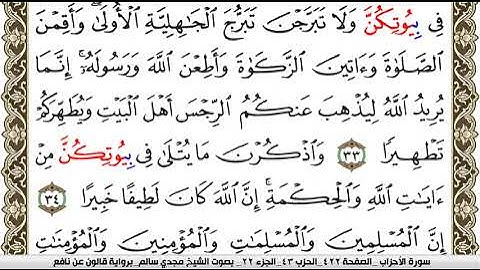 فِى بِيُوتِكُنَّ وَلَا تَبَرَّجْنَ تَبَرُّجَ اَ۬لْجَٰهِلِيَّةِ اِ۬لُاولَىٰۖ وَأَقِمْنَ
اَ۬لصَّلَوٰةَ وَءَاتِينَ اَ۬لزَّكَوٰةَ وَأَطِعْنَ اَ۬للَّهَ وَرَسُولَهُۥٓۖ إِنَّمَا
يُرِيدُ اُ۬للَّهُ لِيُذْهِبَ عَنكُمُ اُ۬لرِّجْسَ أَهْلَ اَ۬لْبَيْتِ وَيُطَهِّرَكُمْ
تَطْهِيراٗ ٣٣ وَاذْكُرْنَ مَا يُتْلَىٰ فِى بِيُوتِكُنَّ مِنْ
ءَايَٰتِ اِ۬للَّهِ وَالْحِكْمَةِۖ إِنَّ اَ۬للَّهَ كَانَ لَطِيفاً خَبِيراٗ ٣٤
إِنَّ اَ۬لْمُسْلِمِينَ وَالْمُسْلِمَٰتِ وَالْمُؤْمِنِينَ وَالْمُؤْمِنَٰتِ
سورة الأحزاب _الصفحة ٤٢٢_ الحزب ٤٣_ الجزء ٢٢_ بصوت الشيخ مجدي سالم_برواية قالون عن نافع